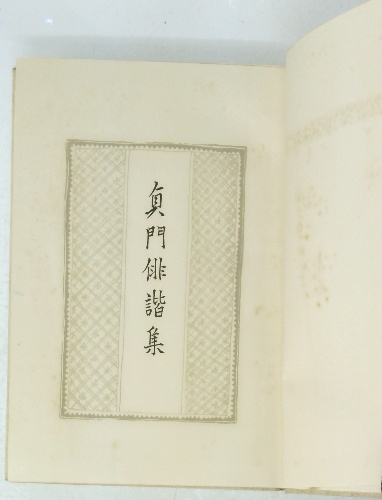 貞門俳諧集